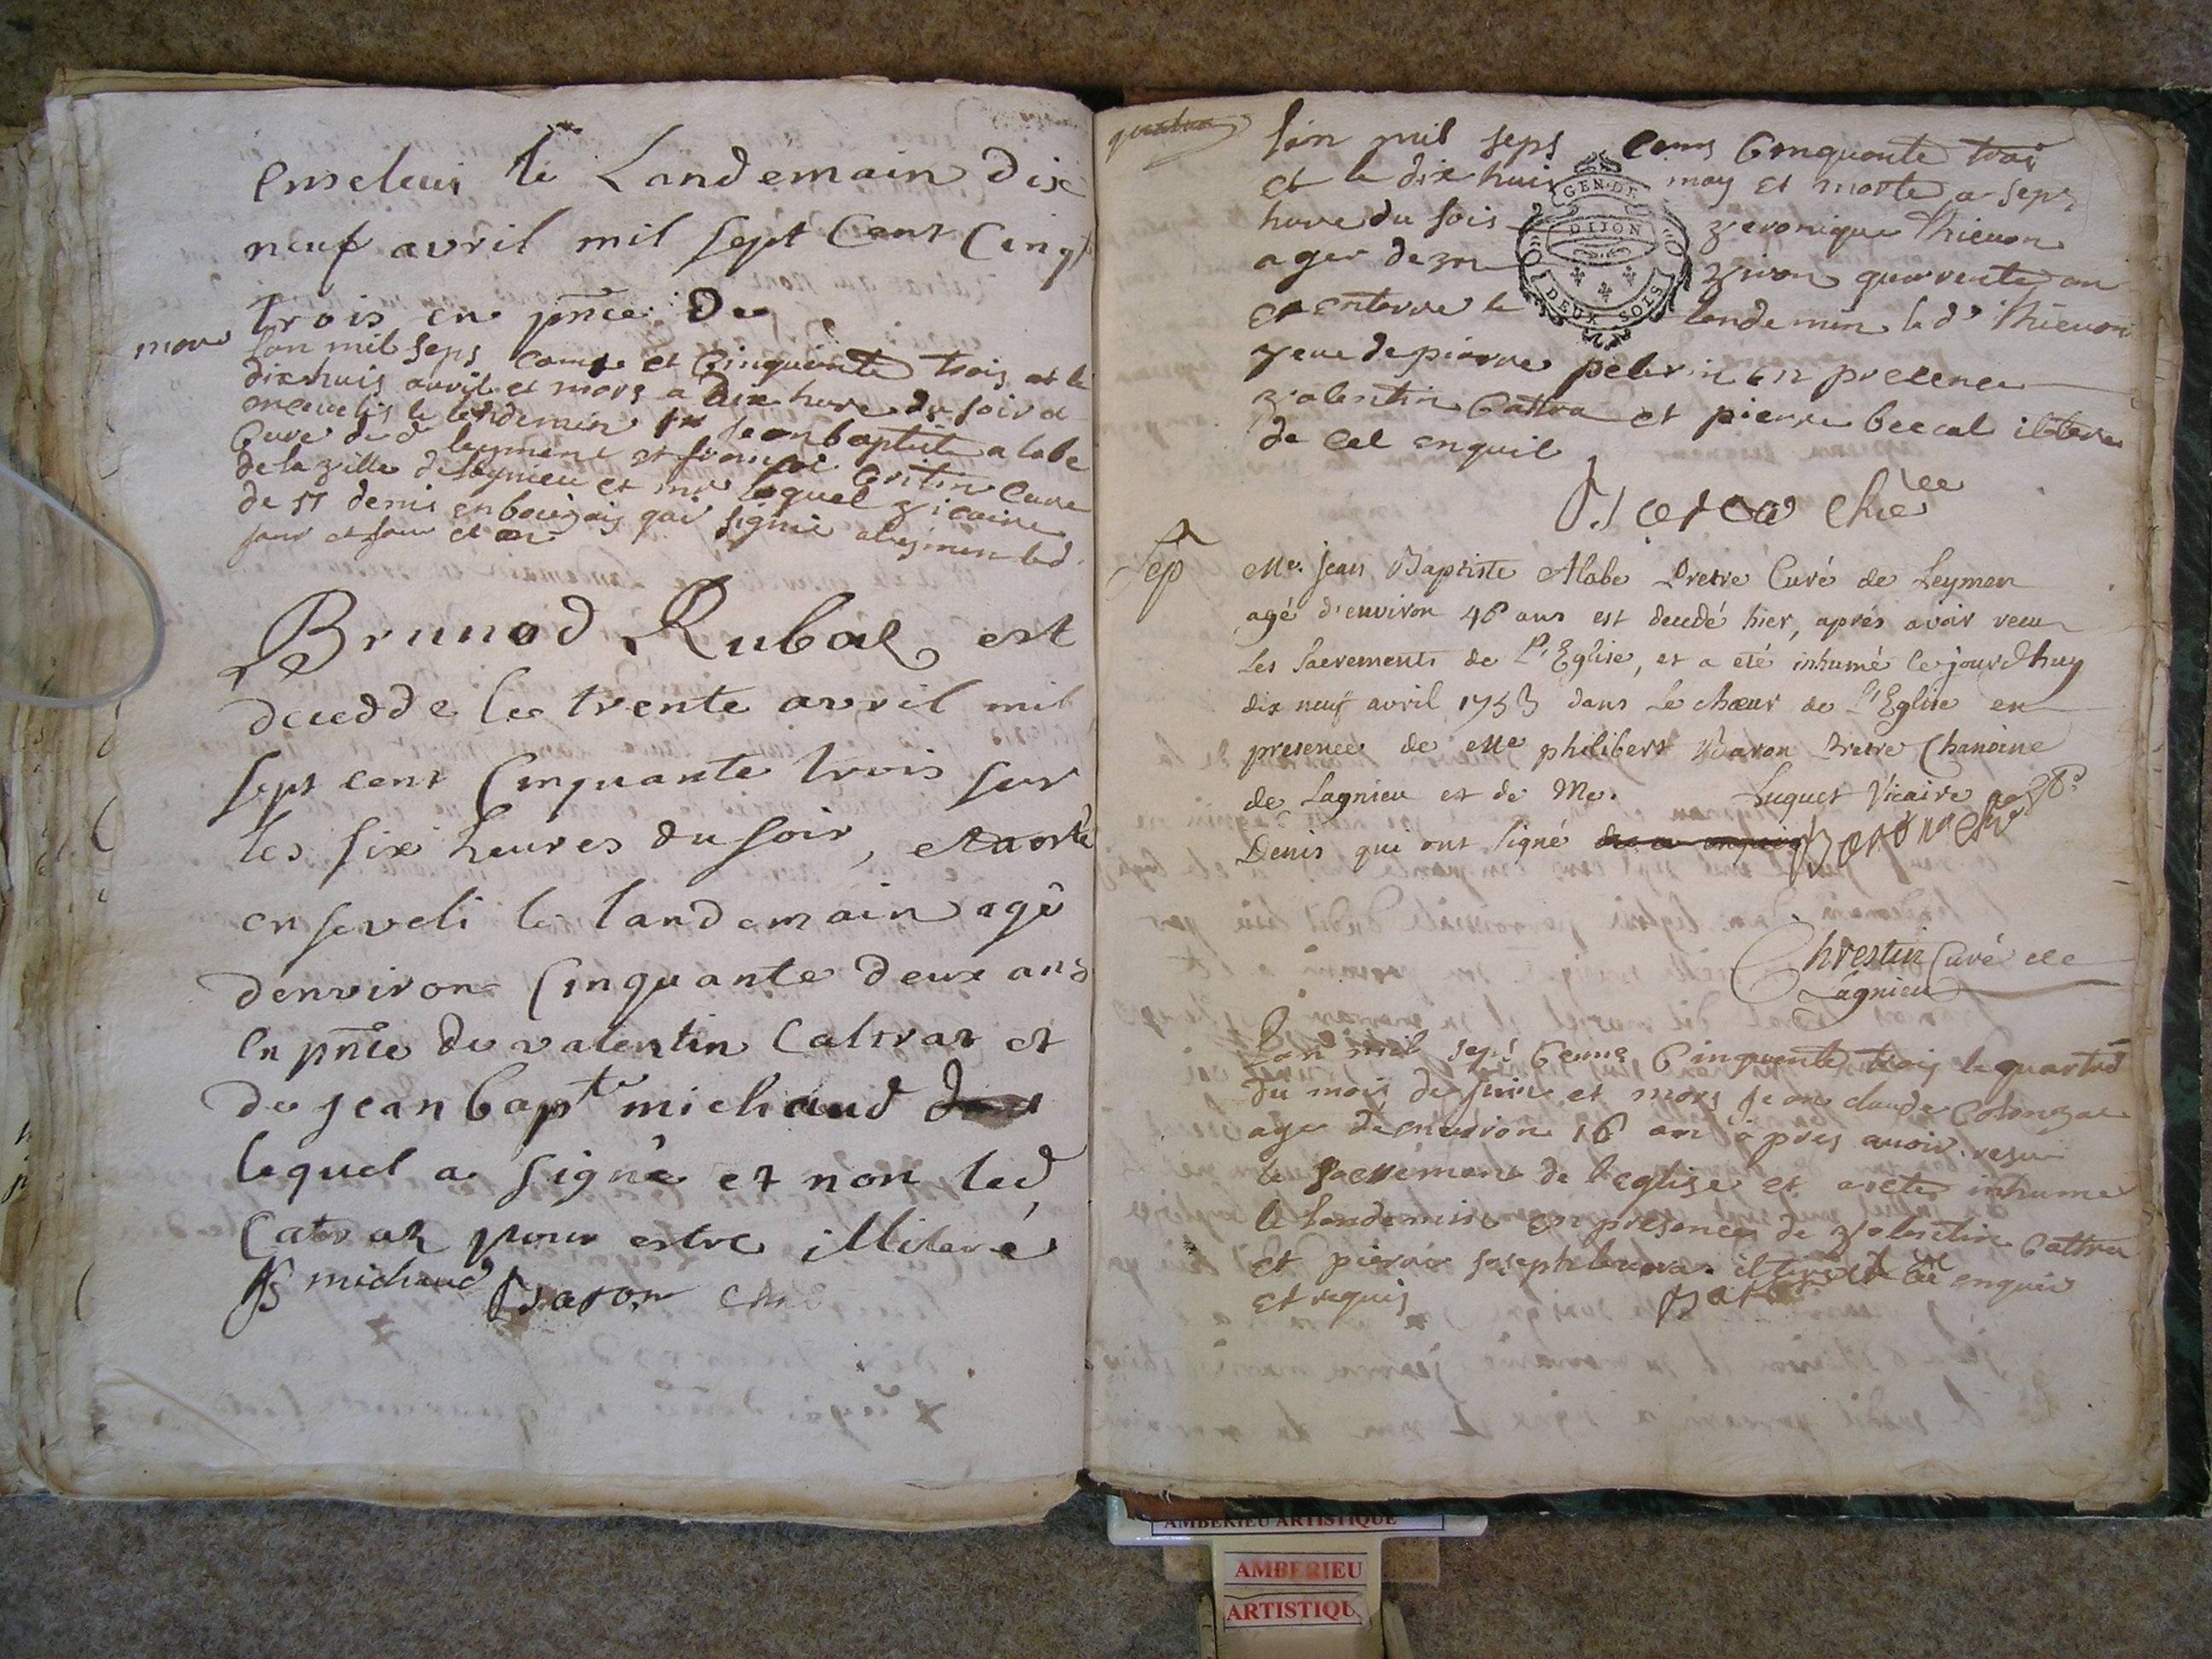 le Landemain dix
neuf avril mil sept Cent Cinqt
trois en pnce De
mors
Lan mil seps et Cinquante trois et le
dixhuis avril et mors a dix hure du soir a
le lendemin jean baptiste alabe
Cure de leymene et Critin Cure
de la ville de lagnieu et mr luquel vicaire
de st denis qui signie
Brunod Rubat est
decedde le trente avril mil
sept cent Cinquante trois sur
les six heures du soir, et a ésté
enseveli le landemain agé
denviron Cinquante deux ans
en pnce de valentin Catraz et
de jean bapte michaud
lequel a signé et non led
Catraz pour estre illiteré
michaud Baron curé
lan mil seps Cens Cinquante trois
et le dix huis may et morte a sept
hure du soir veronique thievon
agee viron quarente an
et enterre le lendemin la de thievon
veuve de pierre pelerin en presence
valentin Cattra et pierre beccat ilitere
de cel enquil
GEN. DE
DIJON
DEUX SOLS
Sep
Me. Jean Baptiste Alabe Pretre Curé de Leymen
agé d'environ 46 ans est decedé hier, aprés avoir recu
les Sacrements de l'Eglise, et a eté inhumé ce jourdhuy
dix neuf avril 1753 dans le chœur de l'Eglise en
presence de Me philibert Baron Pretre Chanoine
de Lagnieu et de Me. Luquet Vicaire a St
Denis qui ont signé
Chrestin Curé de
Lagnieu
Lan mil seps Cens Cinquante trois le quatre
du mois de juin et mors jean claude
age denviron 16 an apres avoir resu
le sacrement de leglise et a eté inhume
le landemin en presence de valentin Cattra
et pierre joseph enquis
et requis
AMBERIEU ARTISTIQUE
AMBERIEU
ARTISTIQU